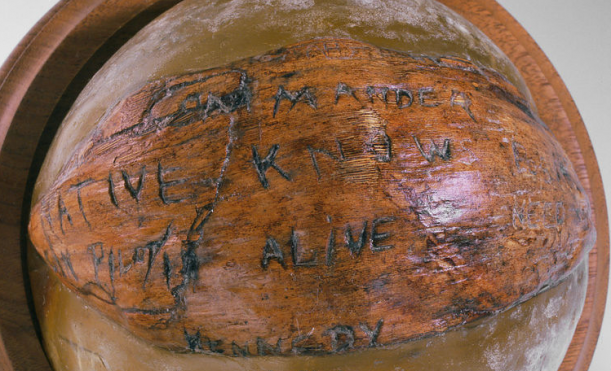 COMMANDER
NATIVE KNOW
PILOT ALIVE NEED
KENNEDY